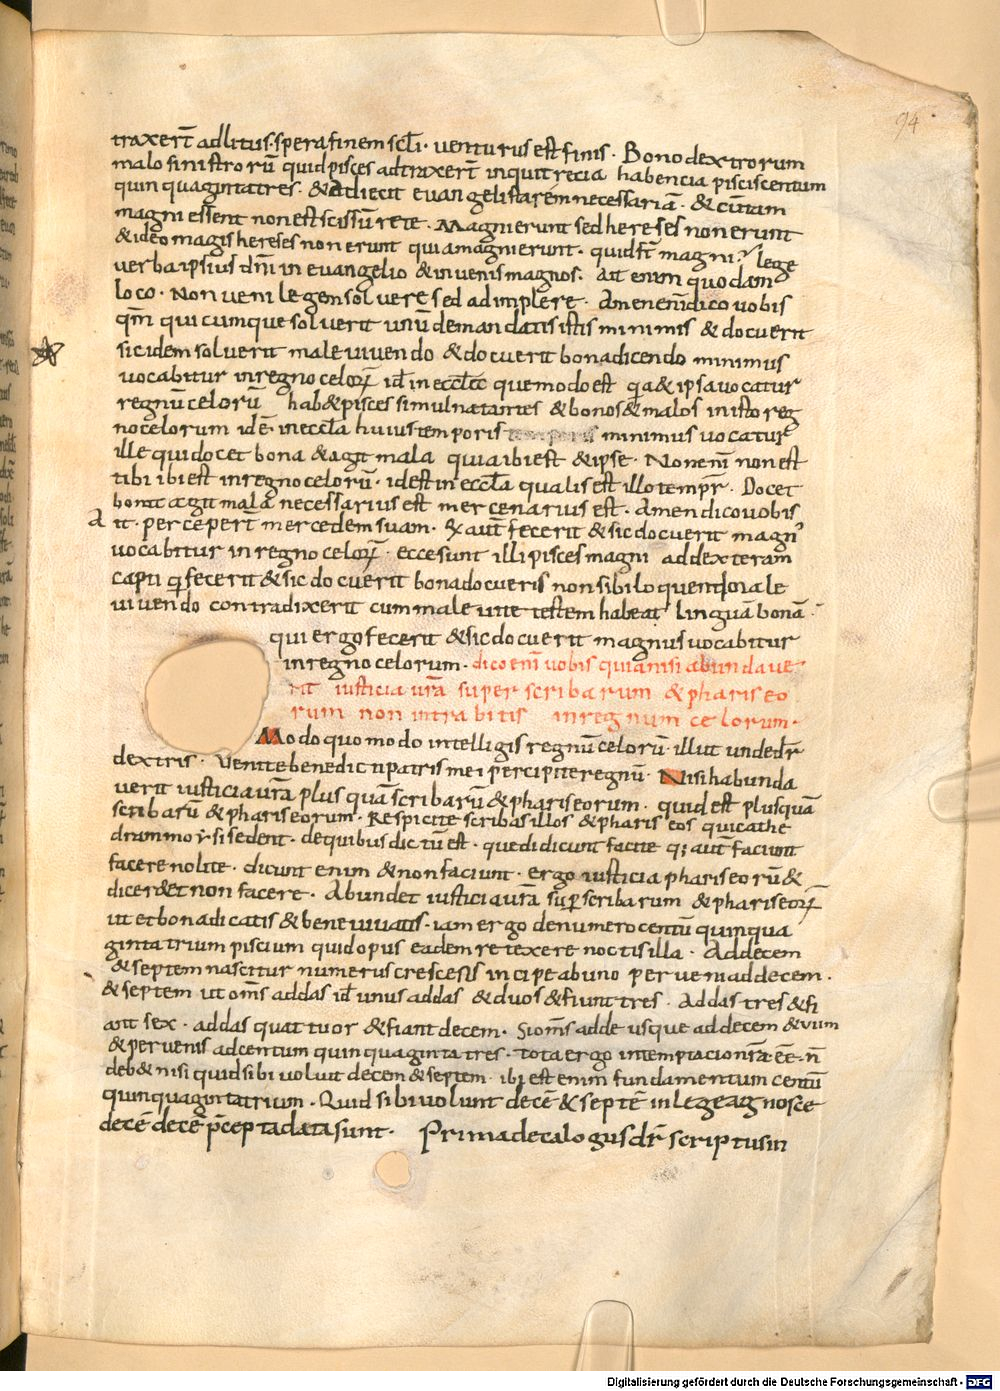 94
traxer̄ ad litus · spera finem scl̄i · venturus est finis · Bono dextrorum
malo sinistrorū quid pisces adtraxer̄ inquit recia habencia pisciscentum
quinquaginta tres · & adiecit evangelista rem necessariā · & cū tam
magni essent non est scissū rete · Magni erunt sed hereses non erunt
& ideo magis hereses non erunt quia magni erunt · quid st̄ magni? lege
verba ipsius dn̄i in evangelio & invenis magnos · ait enim quodam
loco · Non veni legem solvere sed adimplere · Amen enī dico vobis
qm̄ quicumque solverit unū de mandatis istis minimis & docuerit
sic idem solverit male vivendo & docuerit bona dicendo minimus
vocabitur in regno celoꝝ id̄ in eccl̄ec quemodo est q̄a & ipsa vocatur
regnū celorū hab& pisces simul natantes & bonos & malos in isto reg
no celorum id ē in eccl̄a huius temporis minimus vocatur
ille qui docet bona & agit mala quia ibi est & ipse · Non enī non est
tibi ibi est in regno celorū · id est in eccl̄a qualis est illo tempr̄ · Docet
bona agit mala necessarius est mercenarius est · Amen dico vobis
A it · perceper̄t mercedem suam · Q aut̄ fecerit & sic docuerit magn᾽
vocabitur in regno celoꝝ · ecce sunt illi pisces magni ad dexteram
capti q̄ fecerit & sic docuerit bona docueris non sibi loquendo male
vivendo contradixerit cum male vite testem habeat linguā bonā ·
qui ergo fecerit & sic docuerit magnus vocabitur
in regno celorum · dico enī vobis quia nisi abundave
rit iusticia vr̄a super scribarum & phariseo
rum non intrabitis in regnum celorum ·
Modo quomodo intelligis regnū celorū · illut unde dr̄
dextris · Venite benedicti patris mei percipite regnū · Nisi habunda
verit iusticia vr̄a plus quā scribarū & phariseorum · quid est plus quā
scribarū & phariseorum · Respicite scribas illos & phariseos qui cathe
dram moysi sedent · de quibus dictū est · que di dicunt facite q; aut̄ faciunt
facere nolite · dicunt enim & non faciunt · ergo iusticia phariseorū &
dicer& et non facere · Abundet iusticia vr̄a sup̄ scribarum & phariseoꝝ
ut et bona dicatis & bene vivatis · iam ergo de numero centū quinqua
ginta trium piscium quid opus eadem retexere noctis illa · Ad decem
& septem nascitur numerus crescestis incipe ab uno perveni ad decem ·
& septem ut om̄s addas id̄ unus addas & duos & fiunt tres · Addas tres & fi
ant sex · addas quattuor & fiant decem · Si om̄s adde usque ad decem & vum
& pervenis ad centum quinquaginta tres · tota ergo intemptacio nr̄a ēē · n̄
deb& nisi quid sibi voluit decem & septem · ibi est enim fundamentum centū
quinquaginta trium · Quid sibi volunt decē & septē in lege agnosce
decē decē p̄cepta data sunt · Prima decalogus dr̄ scriptus in
Digitalisierung gefördert durch die Deutsche Forschungsgemeinschaft - DFG